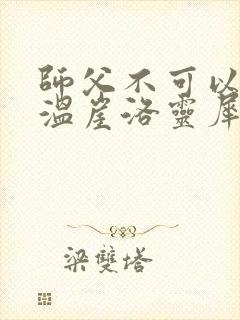 師父不可以
溫崖洛靈犀
梁雙塔